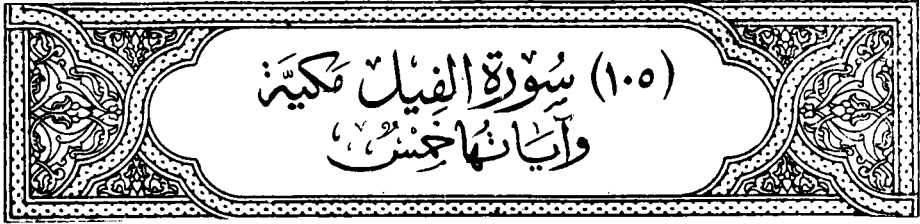 (١٠٥) سُوْرَةِ الفِيلِ مَكيَّة
وَآيَاتُهَا خَمْسٌ